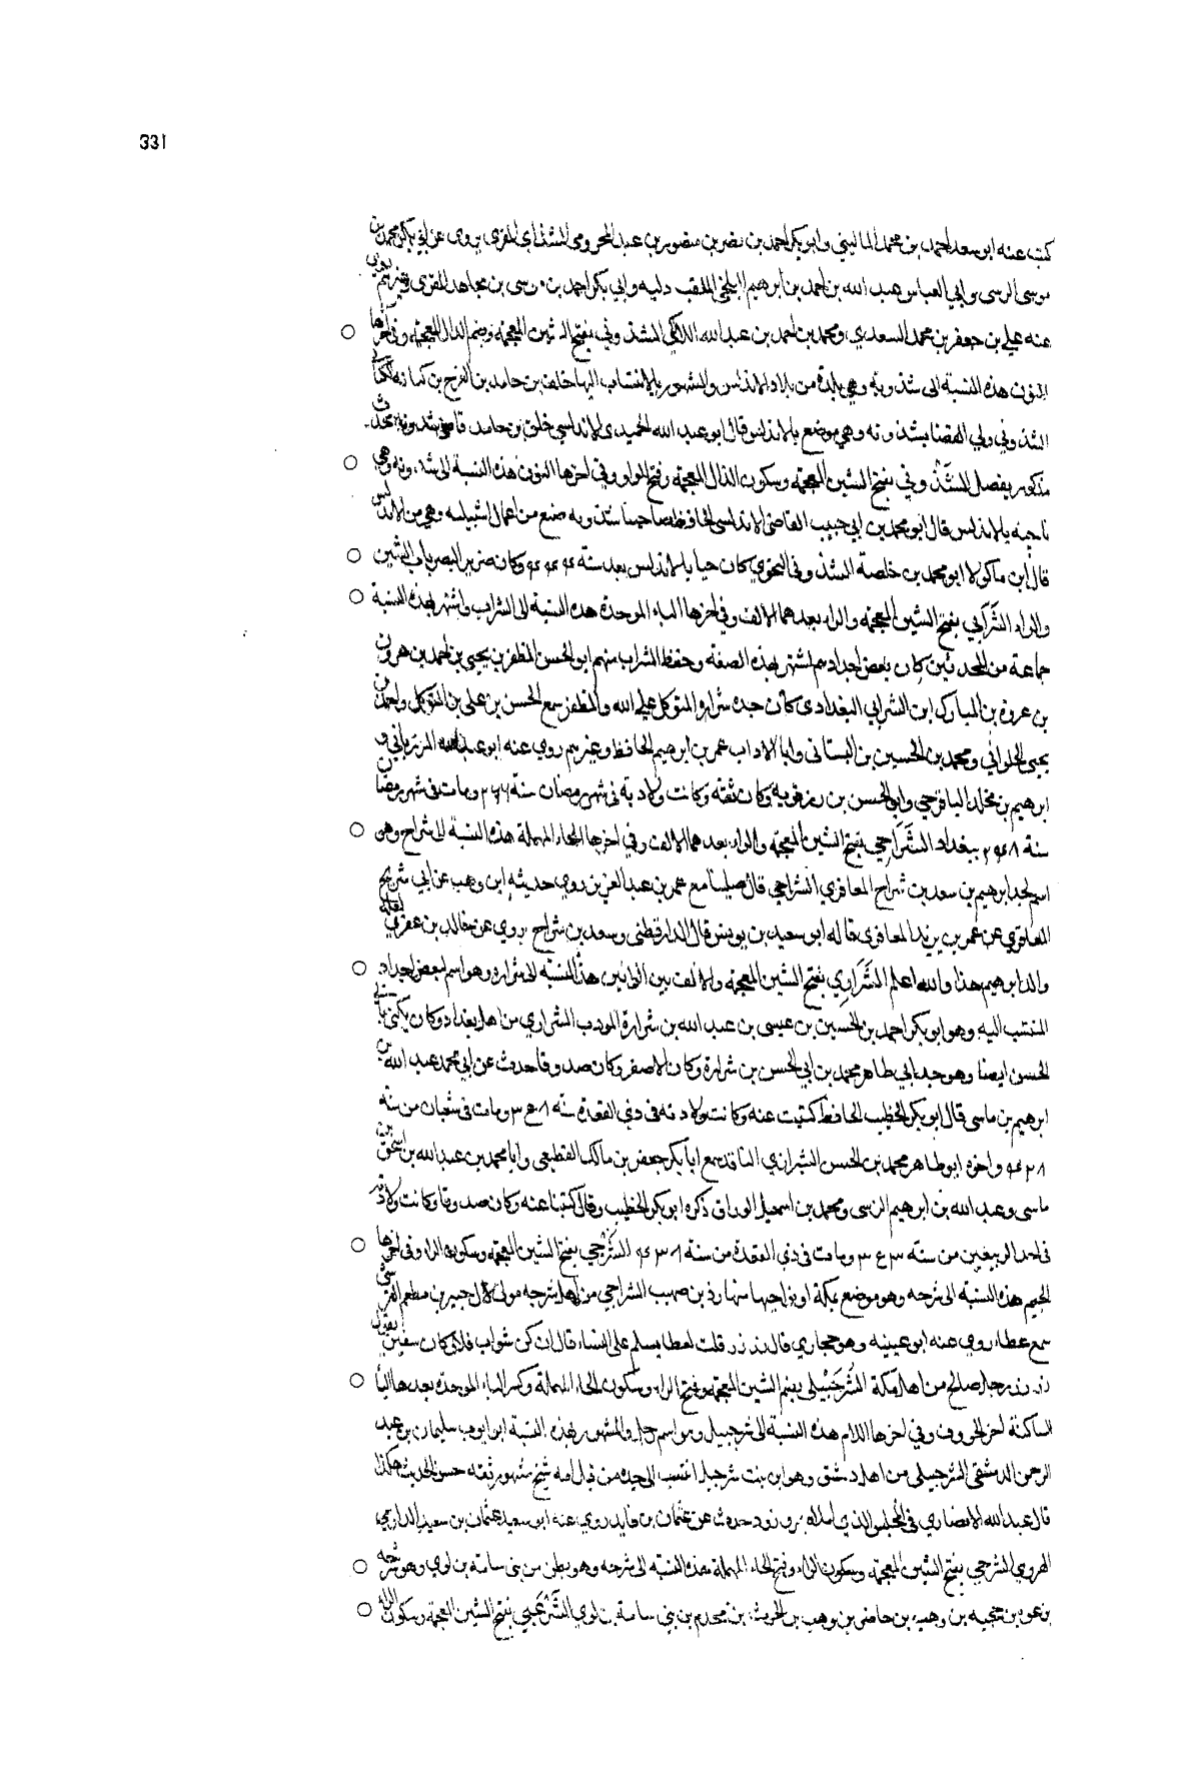 331
كتب عنه ابو سعد احمد بن محمد الماليني وابو بكر احمد بن نصر بن منصور بن عبد المقري يروي عن ابي بكر محمد بن
موسى وابي العباس عبد الله بن احمد بن ابرهيم البلخي الملقب دلبه وابي بكر احمد بن موسى بن مجاهد المقري وغيرهم روى
عنه علي بن جعفر بن محمد السعدي ومحمد بن احمد بن عبد الله ○ الشذوني بفتح الشين المعجمة وضم الذال المعجمة وفي اخرها
النون هذه النسبة الى شذونة وهي بلدة من بلاد الاندلس والمشهور بالانتساب اليها خلف بن حامد بن الفرج بن كنانة الكناني
الشذوني ولي القضا بشذونة وهي موضع بالاندلس قال ابو عبد الله الحميدي الاندلسي خلف بن حامد قاضي شذونة محدث
مذكور بفضل ○ الشَّذْوني بفتح الشين المعجمة وسكون الذال المعجمة وفتح الواو وفي اخرها النون هذه النسبة الى شذونة وهي
ناحية بالاندلس قال ابو محمد بن ابي حبيب القاضي الاندلسي الحافظ صاحبنا شذونة ضيع من اعمال اشبيلية وهي من الاندلس
قال ابن ماكولا ابو محمد بن خلصة الشذوني النحوي كان حيا بالاندلس بعد سنة ۴۴۴ وكان ضرير البصر ○ باب الشين
والراء ○ الشَّرَابي بفتح الشين المعجمة والراء بعدهما الالف وفي اخرها الباء الموحدة هذه النسبة الى الشراب واشتهر بهذه النسبة
جماعة من المحدثين كان بعض اجدادهم اشتهر بهذه الصفة وحفظ الشراب منهم ابو الحسن المظفر بن يحيى بن احمد بن هرون
بن عروة بن المبارك ابن الشرابي البغدادي كان جده شرابي المتوكل على الله والمظفر سمع الحسن بن علي بن المتوكل واحمد بن
يحيى الحلواني ومحمد بن الحسين بن البستاني وابا الاداب عمر بن ابرهيم الحافظ وغيرهم روى عنه ابو عبد الله المرزباني و
ابرهيم بن مخلد الباقرحي وابو الحسن بن رزقويه وكان ثقة وكانت ولادته في شهر رمضان سنة ۲۶۶ ومات في شهر رمضان
سنة ۳۴۸ ببغداد ○ الشَّرَاحي بفتح الشين المعجمة والراء بعدهما الالف وفي اخرها الحاء المهملة هذه النسبة الى شراح وهو
اسم لجد ابرهيم بن سعد بن شراح المعافري الشراحي قال صلينا مع عمر بن عبد العزيز روى حديثه ابن وهب عن ابي شريح
المعافري عن عمر بن يزيد المعافري قاله ابو سعيد بن يونس قال الدارقطني وسعد بن شراح يروي عن خالد بن عفري لعله
والد ابرهيم هذا والله اعلم ○ الشَّرَاري بفتح الشين المعجمة والالف بين الرائين هذه النسبة الى شرارة وهو اسم لبعض اجداد
المنتسب اليه وهو ابو بكر احمد بن الحسين بن عيسى بن عبد الله بن شرارة المودب الشراري من اهل بغداد وكان يكنى بابي
الحسن ايضا وهو جد ابي طاهر محمد بن ابي الحسن بن شرارة وكان الاصغر وكان صدوقا حدث عن ابي محمد عبد الله بن
ابرهيم بن ماسي قال ابو بكر الخطيب الحافظ كتبت عنه وكانت ولادته في ذي القعدة سنة ۳۴۸ ومات في شعبان من سنة
۴۲۸ واخوه ابو طاهر محمد بن الحسن الشراري الناقد سمع ابا بكر جعفر بن مالك القطيعي وابا محمد بن عبد الله بن اسحق بن
ماسي وعبد الله بن ابرهيم الزبيبي ومحمد بن اسمعيل الوراق ذكره ابو بكر الخطيب وقال كتبنا عنه وكان صدوقا وكانت ولادته
في احد الربيعين من سنة ۳۴۳ ومات في ذي القعدة من سنة ۴۳۸ ○ الشرجي بفتح الشين المعجمة وسكون الراء وفي اخرها
الجيم هذه النسبة الى شرجه وهو موضع بمكة او بنواحيها منها رزين بن صهيب الشرجي من اهل شرجه مولى لال جبير بن مطعم القرشي
سمع عطا روى عنه ابو عيينه وهو حجازي قال رزرز قلت لعطا يسلم على النساء قال ان كن شواب فلا كان سفين يقول
زرزر رجل صالح من اهل مكة ○ الشُّرَحْبِيلي بضم الشين المعجمة وفتح الراء وسكون الحاء المهملة وكسر الباء الموحدة بعدها اليا
الساكنة اخر الحروف وفي اخرها اللام هذه النسبة الى شرحبيل وهو اسم رجل والمشهور بهذه النسبة ابو ايوب سليمان بن عبد
الرحمن الدمشقي الشرحبيلي من اهل دمشق وهو ابن بنت شرحبيل انتسب الى جده من قبل امه شيخ مشهور ثقة حسن الحديث هكذا
قال عبد الله الانصاري في المجلس الذي املاه حدث عن عثمان بن فايد روى عنه ابو سعيد عثمان بن سعيد الدارمي
الهروي ○ الشرحي بفتح الشين المعجمة وسكون الراء وفتح الحاء المهملة هذه النسبة الى شرحه وهو بطن من بني سامة بن لوي وهو شرحه
بن عوه بن حجية بن وهب بن حاضر بن وهب بن الحرث بن مجدم من بني سامة بن لوي ○ الشَّرْعَبي بفتح الشين المعجمة وسكون الراء